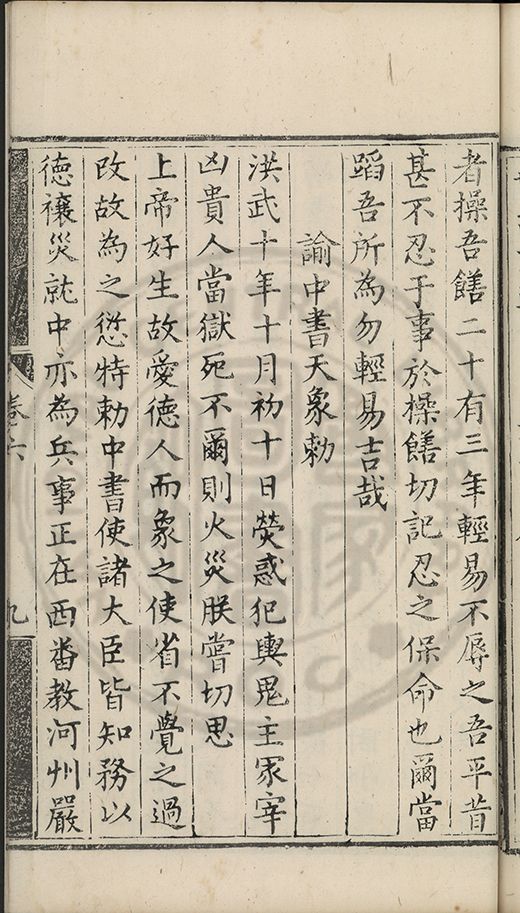 者操吾饍二十有三年輕易不辱之吾平昔
甚不忍于事於操饍切記忍之保命也爾當
蹈吾所為勿輕易吉哉
諭中書天象勅
洪武十年十月初十日熒惑犯輿鬼主冢宰
凶貴人當獄死不爾則火災朕嘗切思
上帝好生故愛德人而象之使省不覺之過
改故為之愆特勅中書使諸大臣皆知務以
德禳災就中亦為兵事正在西畨教河州嚴
卷六
九